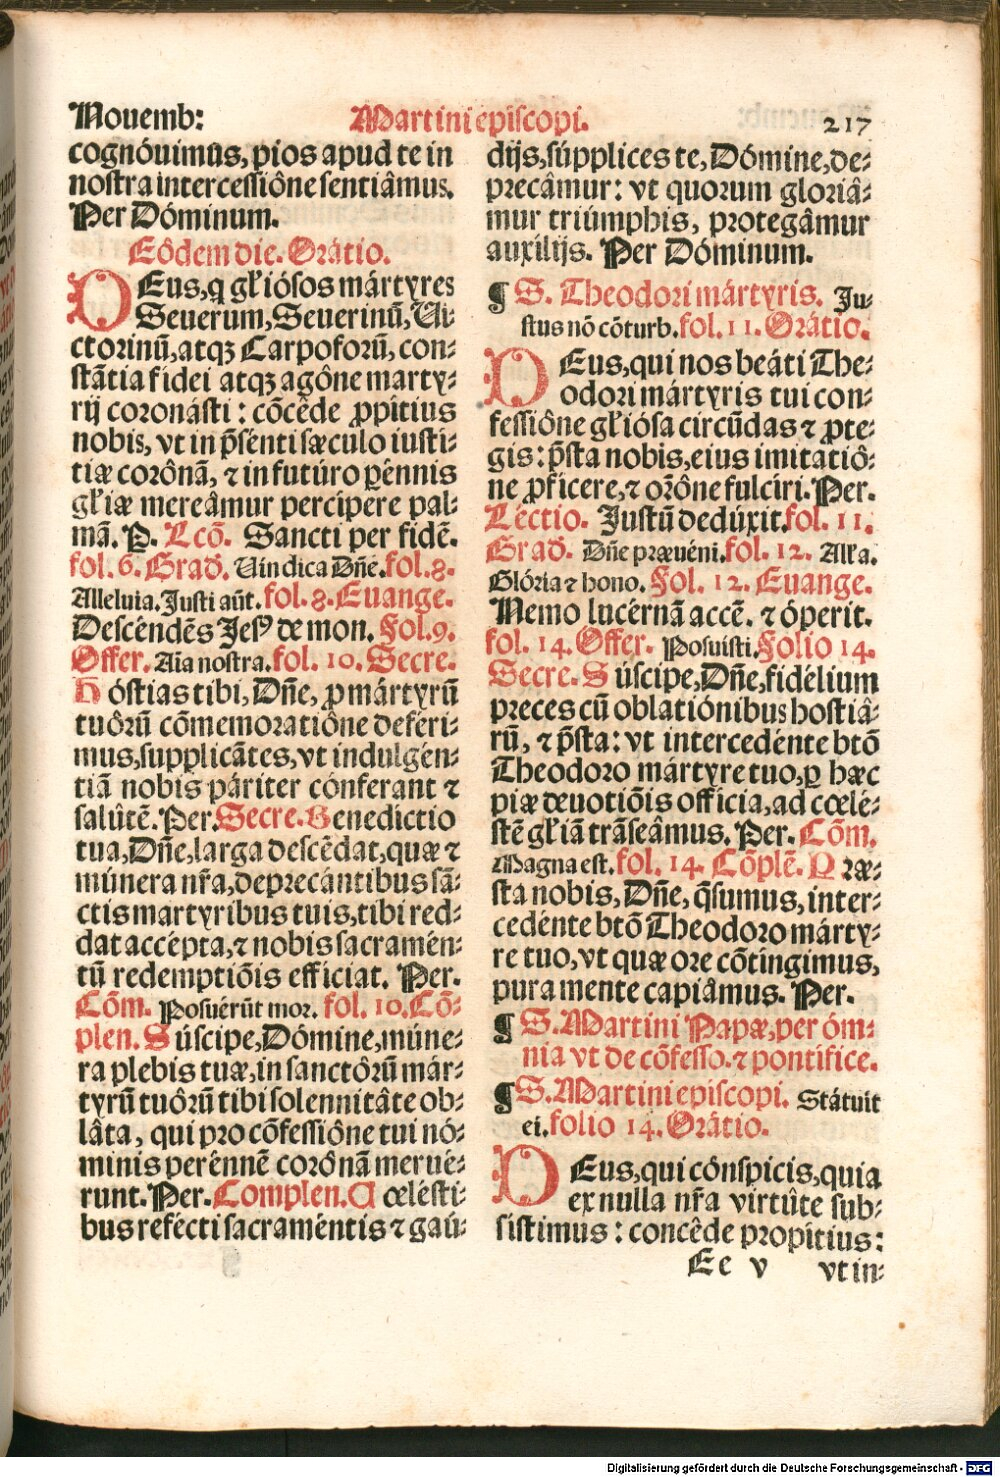 Nouemb:
Martini episcopi.
217
cognóuimus, pios apud te in
nostra intercessiône sentiâmus.
Per Dóminum.
Eôdem die. Orátio.
DEus, q gl'iósos mártyres
Seuerum, Seuerinũ, Ui-
ctorinũ, atqꝫ Carpoforũ, con-
stãtia fidei atqꝫ agône marty-
rij coronásti: cõcêde ꝓpitius
nobis, vt in p̃senti sæculo iusti-
tiæ corônã, ⁊ in futúro ꝑénnis
gl'iæ mereâmur percípere pal-
mã. P. Lcõ. Sancti per fidẽ.
fol. 6. Grad. Uindica Dñe. fol. 8.
Alleluia. Justi aũt. fol. 8. Euange.
Descéndẽs Jesꝰ de mon. Fol. 9.
Offer. Aĩa nostra. fol. 10. Secre.
Hóstias tibi, Dñe, ꝓ mártyrũ
tuôrũ cõmemoratiône deféri-
mus, supplicãtes, vt indulgén-
tiã nobis páriter cónferant ⁊
salûtẽ. Per. Secre. Benedictio
tua, Dñe, larga descẽdat, quæ ⁊
múnera nr̃a, deprecántibus sã-
ctis martyribus tuis, tibi red-
dat accépta, ⁊ nobis sacramén-
tũ redemptiõis efficiat. Per.
Cõm. Posuérũt mor. fol. 10. Cõ-
plen. Súscipe, Dómine, múne-
ra plebis tuæ, in sanctôrũ már-
tyrũ tuôrũ tibi solennitâte ob-
lâta, qui pro cõfessiône tui nó-
minis perénnẽ corônã merué-
runt. Per. Complen. Cœlésti-
bus refécti sacraméntis ⁊ gaú-
dijs, súpplices te, Dómine, de-
precâmur: vt quorum gloriâ-
mur triúmphis, protegâmur
auxilijs. Per Dóminum.
¶ S. Theodori mártyris. Ju-
stus nõ cõturb. fol. 11. Orátio.
DEus, qui nos beáti The-
odori mártyris tui con-
fessiône gl'iósa circũdas ⁊ ꝓte-
gis: p̃sta nobis, eius imitatiô-
ne ꝓficere, ⁊ or̃õne fulciri. Per.
Léctio. Justũ dedúxit. fol. 11.
Grad. Dñe præuéni. fol. 12. Alľa.
Glória ⁊ hono. Fol. 12. Euange.
Nemo lucérnã accẽ. ⁊ óperit.
fol. 14. Offer. Posuisti. Folio 14.
Secre. Súscipe, Dñe, fidélium
preces cũ oblatiónibus hostiâ-
rũ, ⁊ p̃sta: vt intercedénte btõ
Theodoro mártyre tuo, ꝑ hæc
piæ deuotiõis officia, ad cœlé-
stẽ gl'iã trãseâmus. Per. Cõm.
Magna est. fol. 14. Cõplẽ. Præ-
sta nobis, Dñe, q̃sumus, inter-
cedénte btõ Theodoro márty-
re tuo, vt quæ ore cõtingimus,
pura mente capiâmus. Per.
¶ S. Martini Papæ, per óm-
nia vt de cõfesso. ⁊ pontifice.
¶ S. Martini episcopi. Státuit
ei. folio 14. Orátio.
DEus, qui cónspicis, quia
ex nulla nr̃a virtûte sub-
sistimus: concêde propítius:
Ee v vt in-
Digitalisierung gefördert durch die Deutsche Forschungsgemeinschaft - DFG